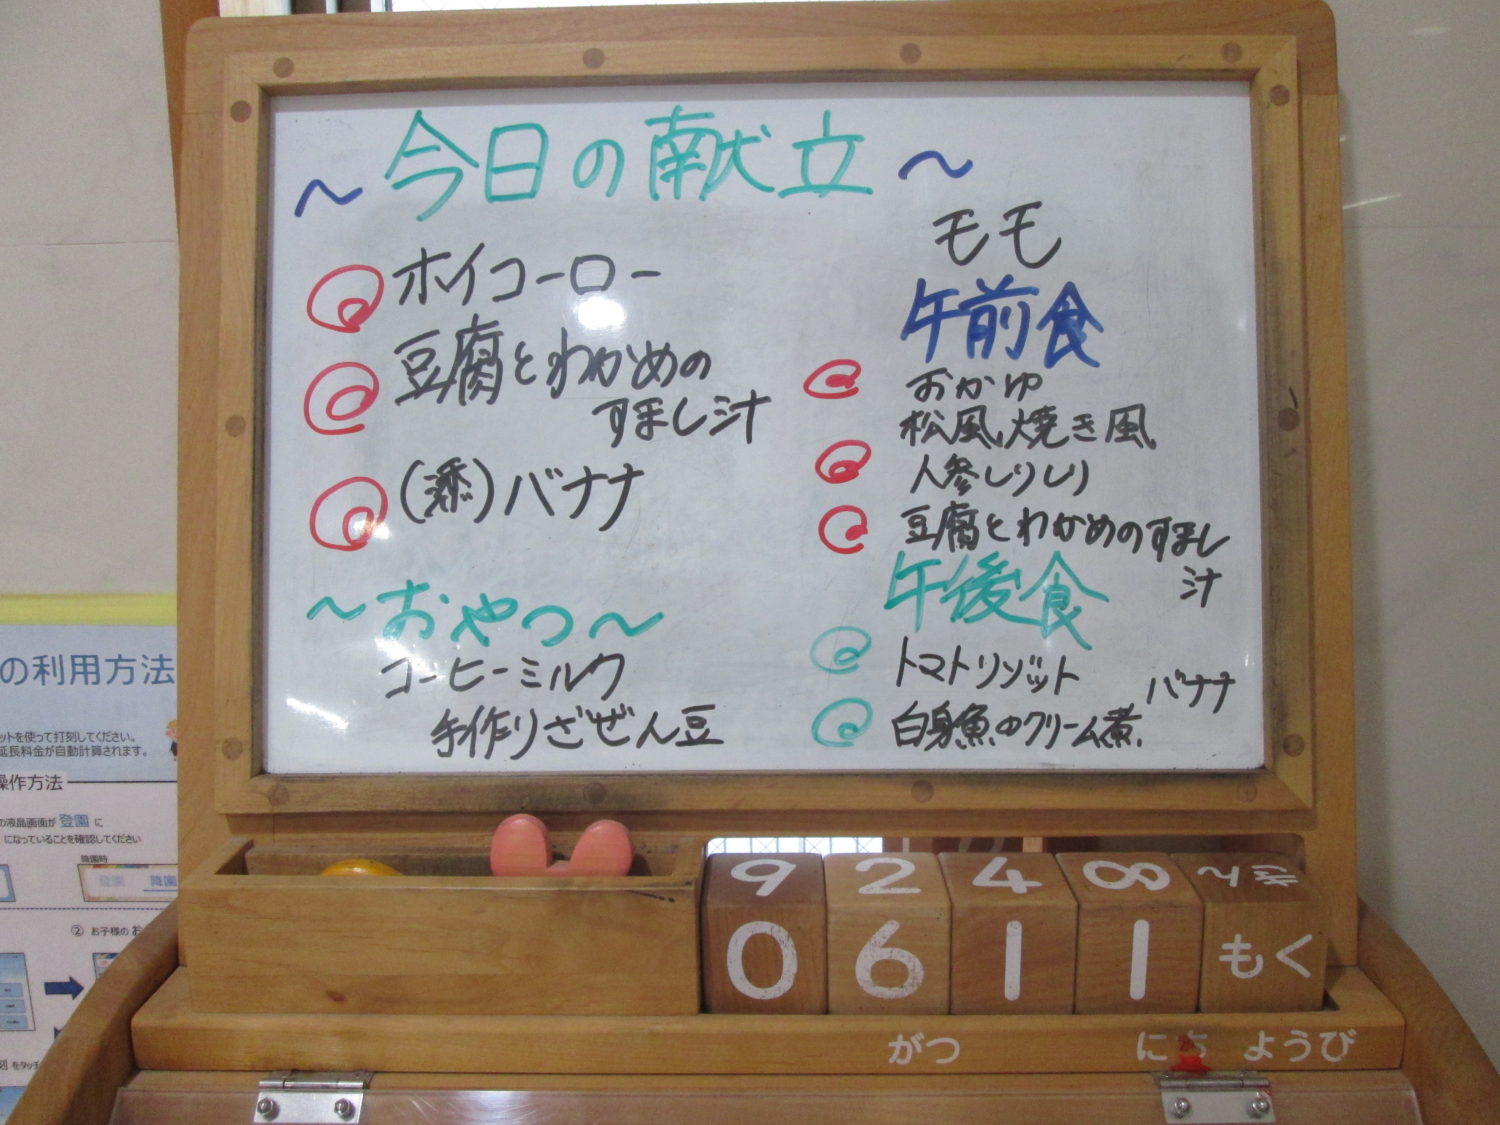 ～今日の献立～
ホイコーロー
豆腐とわかめの
すまし汁
(添)バナナ
～おやつ～
コーヒーミルク
手作りざぜん豆
モモ
午前食
おかゆ
松風焼き風
人参しりしり
豆腐とわかめのすまし
汁
午後食
トマトリゾット
バナナ
白身魚のクリーム煮
の利用方法
ットを使って打刻してください。
延長料金が自動計算されます。
操作方法
の液晶画面が 登園 に
になっていることを確認してください
降園時
登園 降園
② お子様のお
刻 をタッチ
9 2 4 8
0 6 1 1 もく
がつ にち ようび